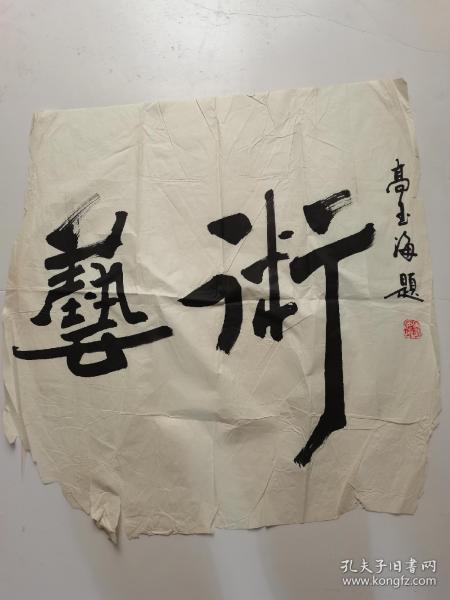 藝術
高玉海題
孔夫子旧书网
www.kongfz.com